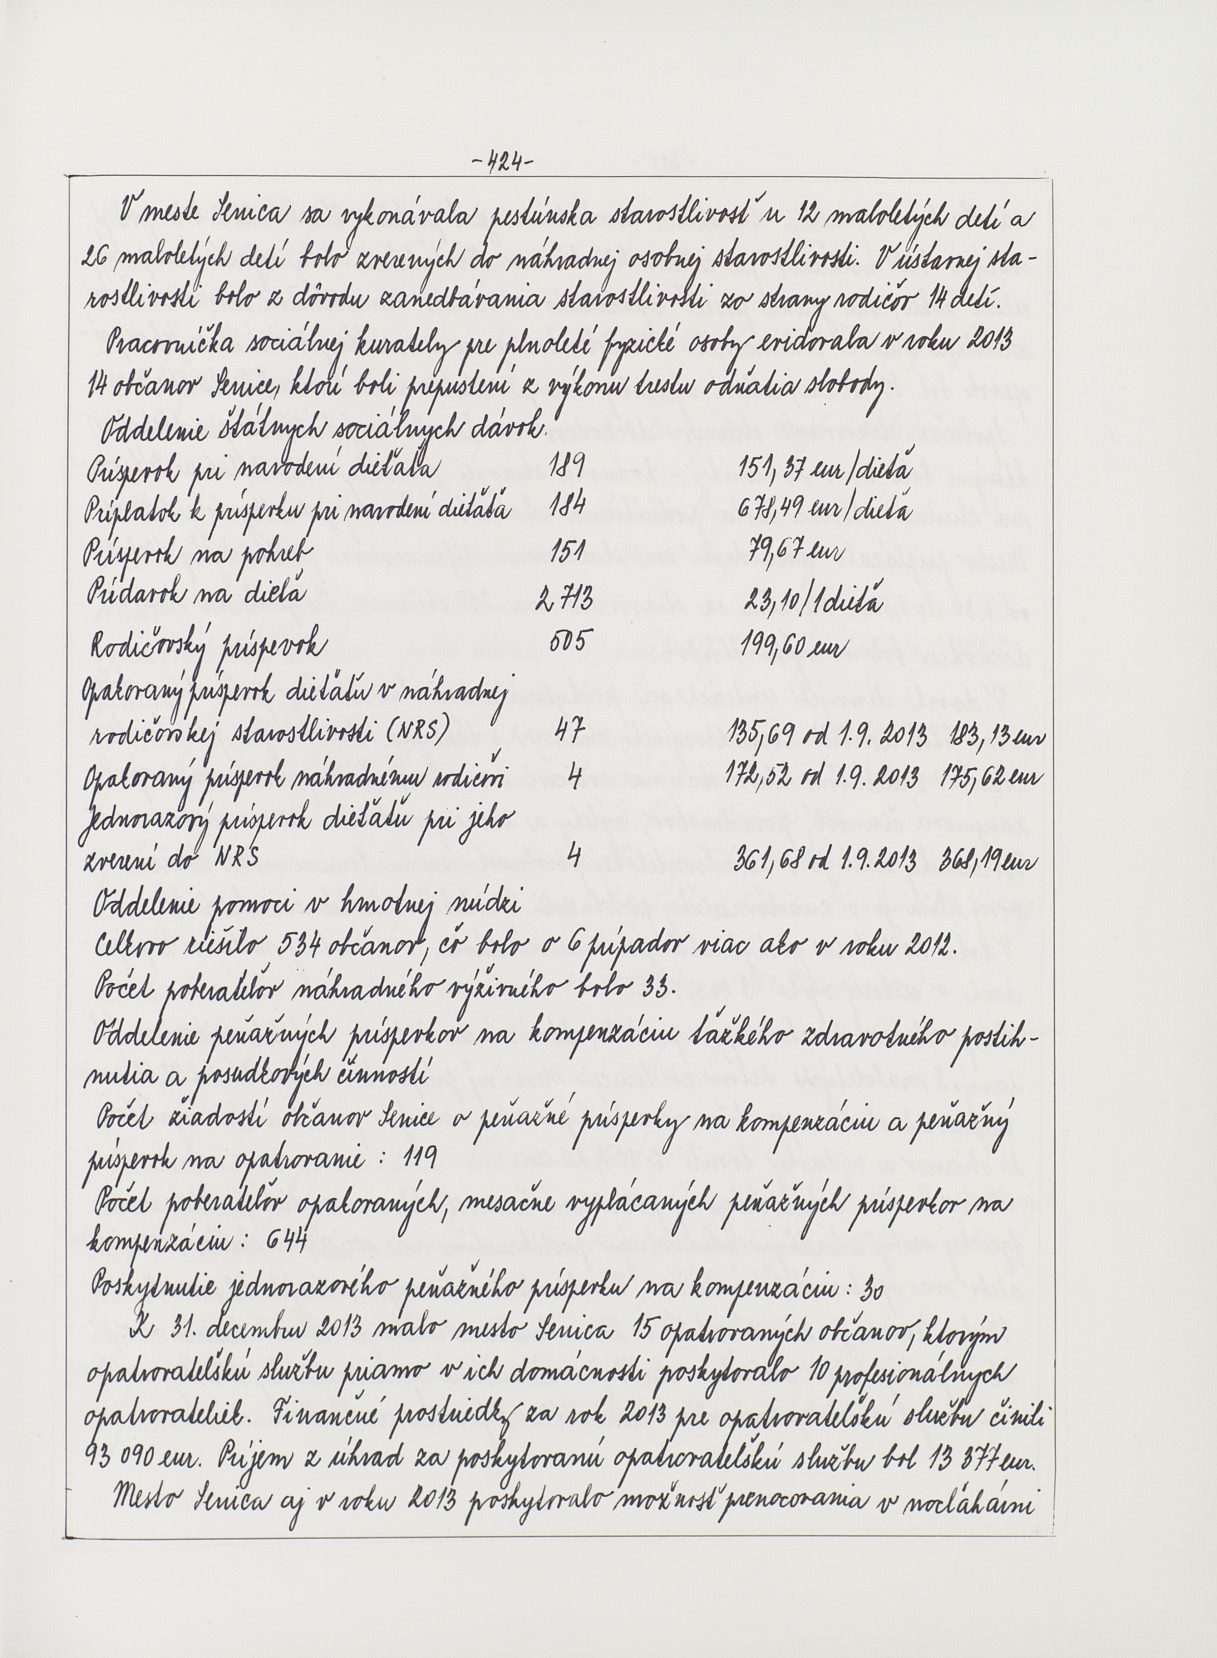 -424-
V meste Senica sa vykonávala pestúnska starostlivosť u 12 maloletých detí a
26 maloletých detí bolo zverených do náhradnej osobnej starostlivosti. V ústavnej sta-
rostlivosti bolo z dôvodu zanedbávania starostlivosti zo strany rodičov 14 detí.
Pracovníčka sociálnej kurately pre plnoleté fyzické osoby evidovala v roku 2013
14 občanov Senice, ktorí boli prepustení z výkonu trestu odňatia slobody.
Oddelenie štátnych sociálnych dávok.
Príspevok pri narodení dieťaťa 189 151,37 eur/dieťa
Príplatok k príspevku pri narodení dieťaťa 184 678,49 eur/dieťa
Príspevok na pohreb 151 79,67 eur
Prídavok na dieťa 2 713 23,10/1dieťa
Rodičovský príspevok 505 199,60 eur
Opakovaný príspevok dieťaťu v náhradnej
rodičovskej starostlivosti (NRS) 47 135,69 od 1.9.2013 183,13 eur
Opakovaný príspevok náhradnému rodičovi 4 172,52 od 1.9.2013 175,62 eur
Jednorazový príspevok dieťaťu pri jeho
zverení do NRS 4 361,68 od 1.9.2013 368,19 eur
Oddelenie pomoci v hmotnej núdzi
Celkovo riešilo 534 občanov, čo bolo o 6 prípadov viac ako v roku 2012.
Počet poberateľov náhradného výživného bolo 33.
Oddelenie peňažných príspevkov na kompenzáciu ťažkého zdravotného postih-
nutia a posudkových činností
Počet žiadostí občanov Senice o peňažné príspevky na kompenzáciu a peňažný
príspevok na opatrovanie : 119
Počet poberateľov opakovaných, mesačne vyplácaných peňažných príspevkov na
kompenzáciu : 644
Poskytnutie jednorazového peňažného príspevku na kompenzáciu : 30
K 31. decembru 2013 malo mesto Senica 15 opatrovaných občanov, ktorým
opatrovateľskú službu priamo v ich domácnosti poskytovalo 10 profesionálnych
opatrovateliek. Finančné prostriedky za rok 2013 pre opatrovateľskú službu činili
93 090 eur. Príjem z úhrad za poskytovanú opatrovateľskú službu bol 13 377 eur.
Mesto Senica aj v roku 2013 poskytovalo možnosť prenocovania v nocľahárni